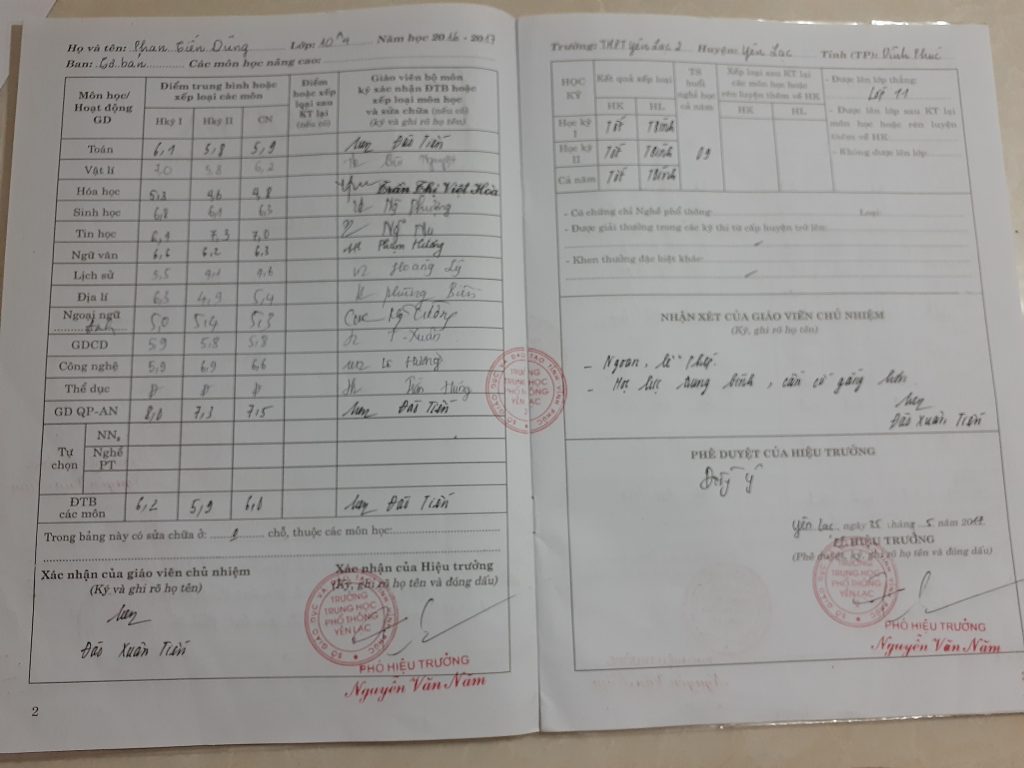 Họ và tên: Phan Tiến Dũng Lớp: 10A4 Năm học 2016 - 2017
Ban: Cơ bản Các môn học nâng cao:
Môn học/ Hoạt động GD | Điểm trung bình hoặc xếp loại các môn | Điểm hoặc xếp loại sau KT lại (nếu có) | Giáo viên bộ môn ký xác nhận ĐTB hoặc xếp loại môn học và sửa chữa (nếu có) (ký và ghi rõ họ tên)
Hkỳ I | Hkỳ II | CN
Toán 6,1 5,8 5,9 Đào Tiến
Vật lí 7,0 5,8 6,2 Nguyệt
Hóa học 5,3 4,6 4,8 Trần Thị Việt Hoà
Sinh học 6,8 6,1 6,3 Phường
Tin học 6,4 7,3 7,0 Ngô
Ngữ văn 6,6 6,2 6,3 Phạm Hường
Lịch sử 5,5 4,1 4,6 Hoàng Lý
Địa lí 6,3 4,9 5,4 Phùng Biên
Ngoại ngữ Anh 5,0 5,4 5,3
GDCD 5,9 5,8 5,8 T. Xuân
Công nghệ 5,9 6,9 6,6 Lê Hương
Thể dục Đ Đ Đ
GD QP-AN 8,0 7,3 7,5 Đào Tiến
Tự chọn
NN2
Nghề PT
ĐTB các môn 6,2 5,9 6,0 Đào Tiến
Trong bảng này có sửa chữa ở: 0 chỗ, thuộc các môn học:
Xác nhận của giáo viên chủ nhiệm
(Ký và ghi rõ họ tên)
Đào Xuân Tiến
Xác nhận của Hiệu trưởng
(Ký, ghi rõ họ tên và đóng dấu)
SỞ GIÁO DỤC VÀ ĐÀO TẠO TỈNH VĨNH PHÚC
TRƯỜNG
TRUNG HỌC
PHỔ THÔNG
YÊN LẠC
PHÓ HIỆU TRƯỞNG
Nguyễn Văn Năm
2
Trường: THPT Yên Lạc 2 Huyện: Yên Lạc Tỉnh (TP): Vĩnh Phúc
HỌC KỲ | Kết quả xếp loại | TS buổi nghỉ học cả năm | Xếp loại sau KT lại các môn học hoặc rèn luyện thêm về HK
HK | HL | HK | HL
Học kỳ I Tốt TBình
Học kỳ II Tốt TBình 09
Cả năm Tốt TBình
- Được lên lớp thẳng:
Lớp 11
- Được lên lớp sau KT lại môn học hoặc rèn luyện thêm về HK
- Không được lên lớp:
- Có chứng chỉ Nghề phổ thông: Loại:
- Được giải thưởng trong các kỳ thi từ cấp huyện trở lên:
- Khen thưởng đặc biệt khác:
NHẬN XÉT CỦA GIÁO VIÊN CHỦ NHIỆM
(Ký, ghi rõ họ tên)
- Ngoan, lễ phép.
- Học lực trung bình, cần cố gắng hơn
Đào Xuân Tiến
SỞ GIÁO DỤC VÀ ĐÀO TẠO TỈNH VĨNH PHÚC
TRƯỜNG
TRUNG HỌC
PHỔ THÔNG
YÊN LẠC
2
PHÊ DUYỆT CỦA HIỆU TRƯỞNG
Đồng ý
Yên Lạc, ngày 25 tháng 5 năm 2017
HIỆU TRƯỞNG
(Phê duyệt, ký, ghi rõ họ tên và đóng dấu)
PHÓ HIỆU TRƯỞNG
Nguyễn Văn Năm